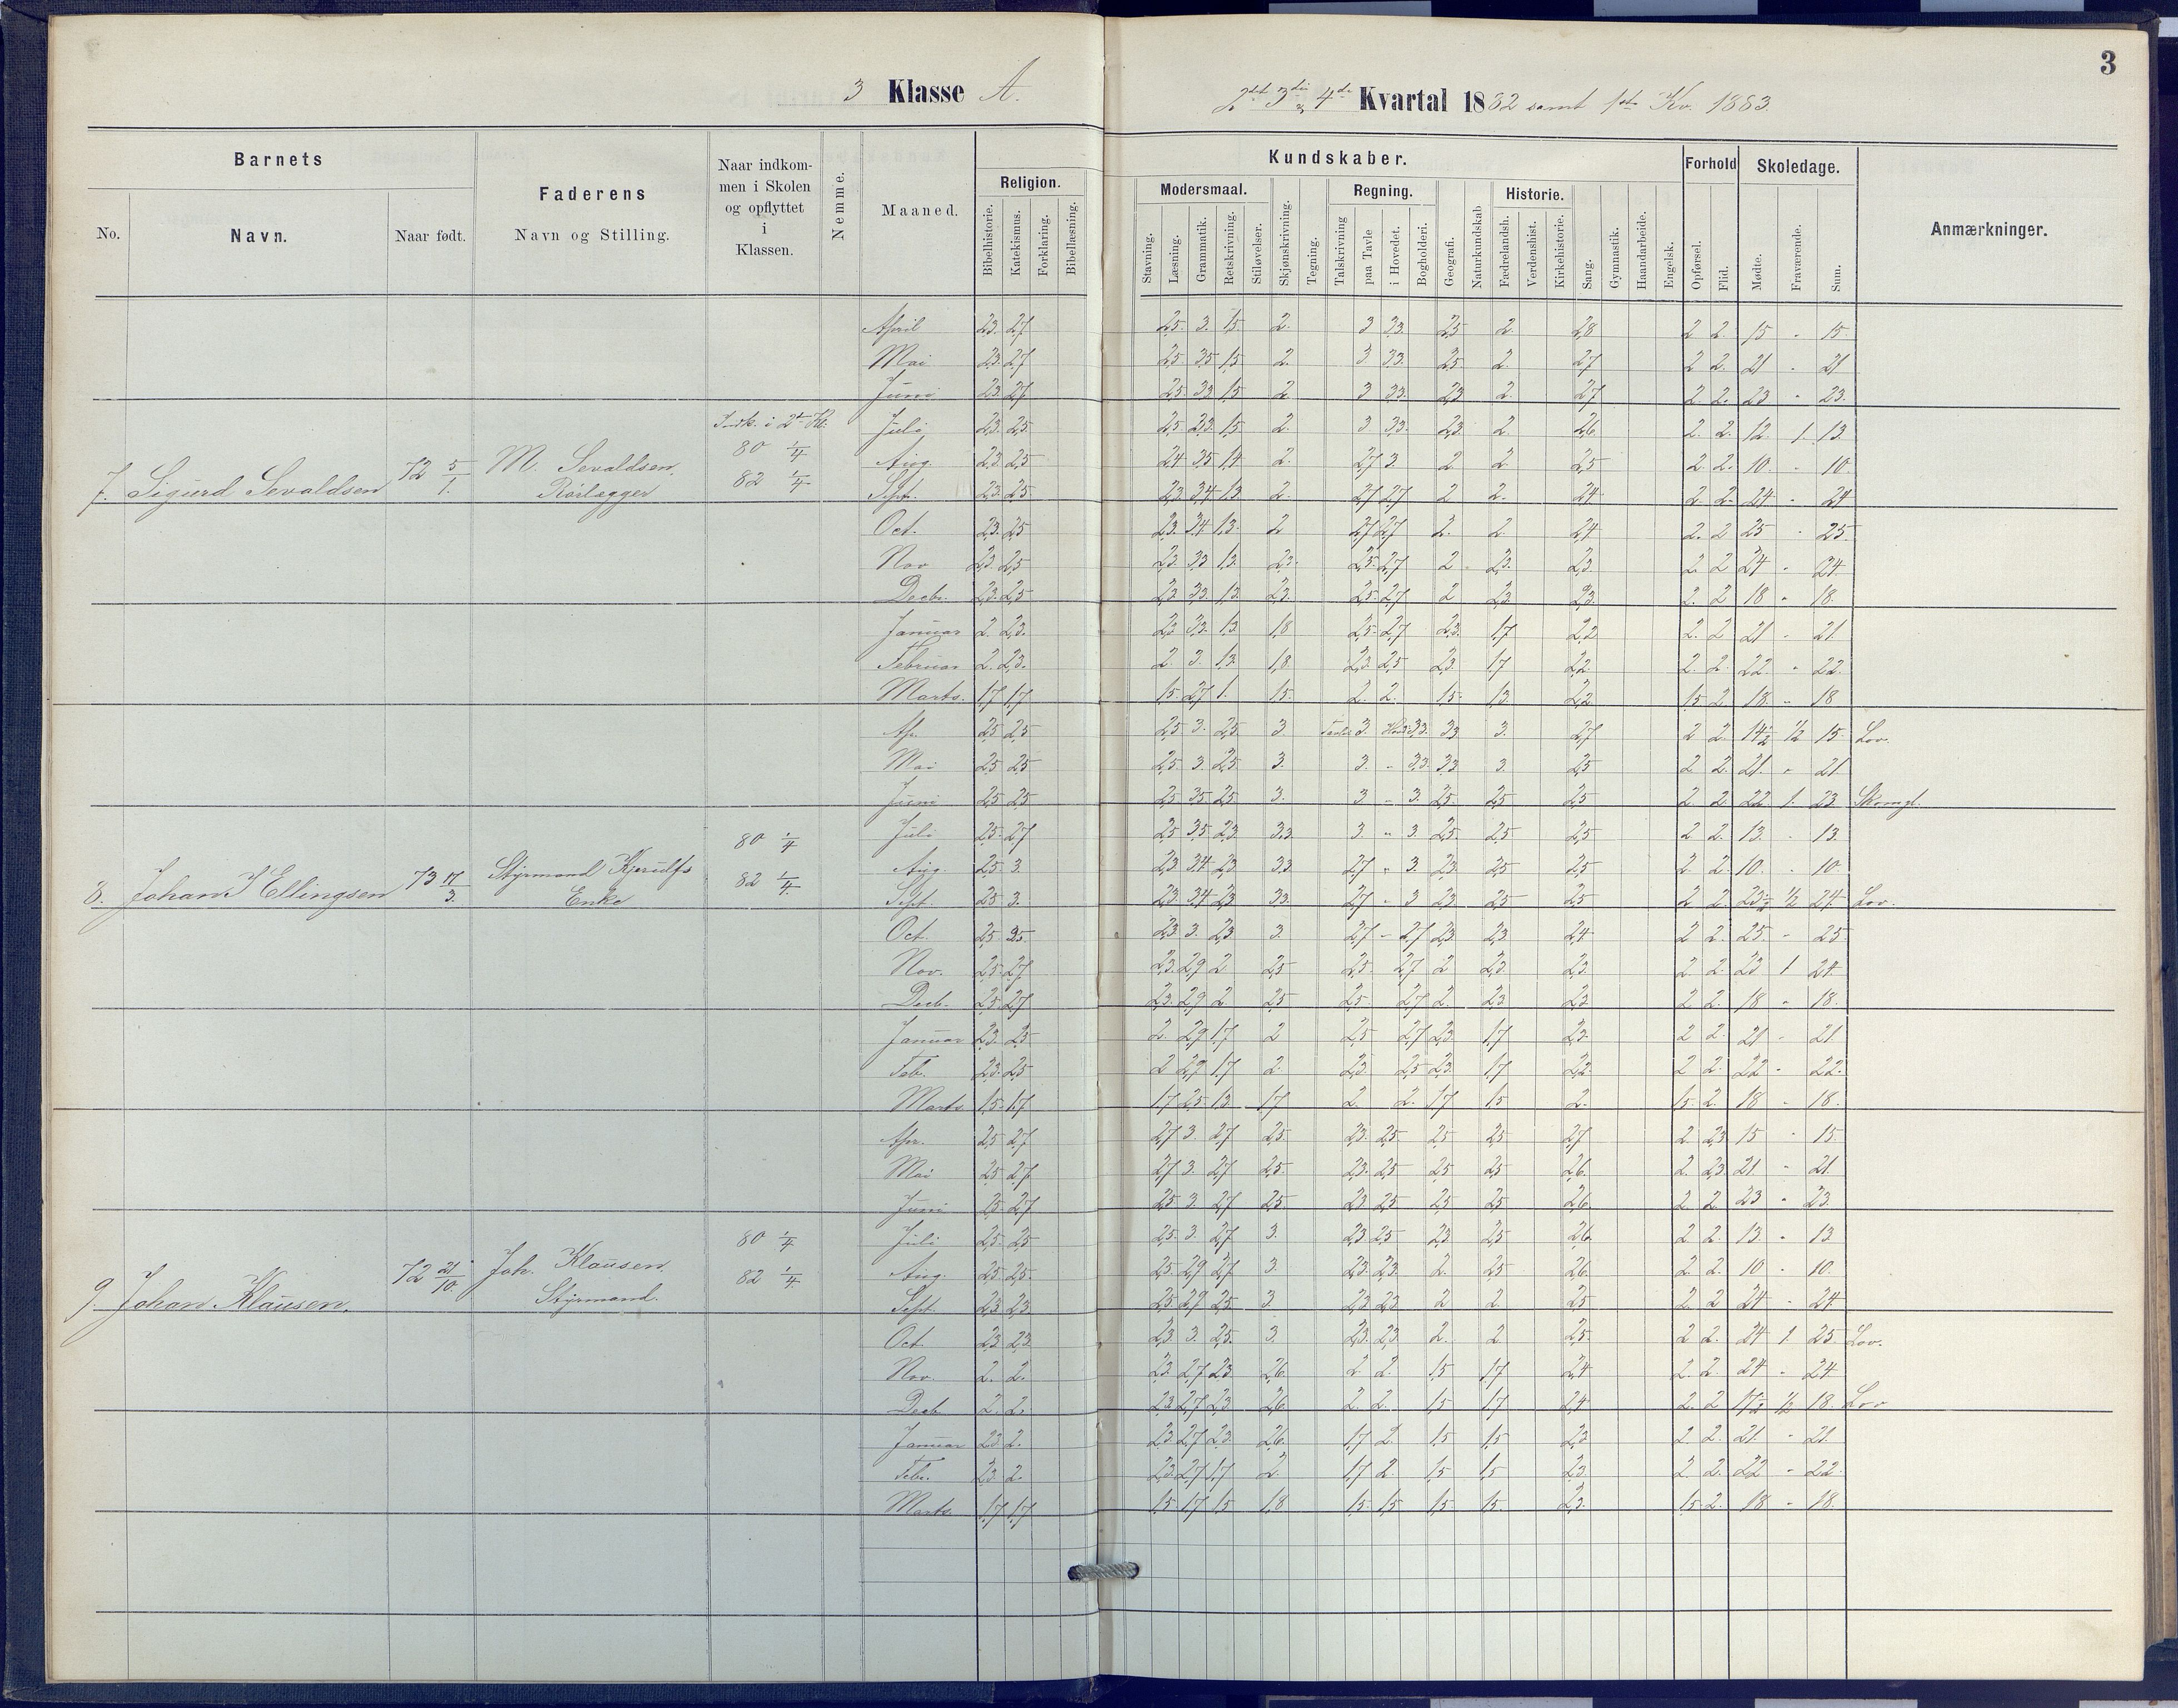 3
3 Klasse A.
2det 3die & 4de Kvartal 1882 samt 1ste Kv. 1883.
Barnets
Faderens
Navn og Stilling.
Naar indkommen i Skolen og opflyttet i Klassen.
Nemme.
Maaned.
Religion.
Kundskaber.
Forhold
Skoledage.
Anmærkninger.
No.
Navn.
Naar født.
Bibelhistorie.
Katekismus.
Forklaring.
Bibellæsning.
Modersmaal.
Stavning.
Læsning.
Grammatik.
Retskrivning.
Stiløvelser.
Skjønskrivning.
Tegning.
Regning.
Talskrivning
paa Tavle
i Hovedet.
Bogholderi.
Geografi.
Naturkundskab
Historie.
Fædrelandsh.
Verdenshist.
Kirkehistorie.
Sang.
Gymnastik.
Haandarbeide.
Engelsk.
Opførsel.
Flid.
Mødte.
Fraværende.
Sum.
7. Sigurd Sevaldsen 72 5/1. M. Sevaldsen, Rørlægger Indk. i 2den Kl. 80 1/4 82 1/4
April 2,3. 2,7 2,5. 3. 1,5 2. 3 3,3. 2,5 2. 2,8 2 2. 15 - 15.
Mai 2,3 2,7 2,5 3,5 1,5 2. 3 3,3. 2,5. 2. 2,7 2 2. 21 - 21
Juni 2,3. 2,7 2,5. 3,3 1,5 2. 3 3,3. 2,3 2. 2,7 2. 2. 23 - 23.
Juli 2,3. 2,5 2,5. 2,3. 1,5 2. 3 3,3. 2,3. 2. 2,6 2. 2. 12. 1. 13.
Aug. 2,3. 2,5 2,4 3,5 1,4 2. 2,7 3. 2 2. 2,5 2. 2. 10. - 10.
Sept. 2,3. 2,5 2,3. 3,4 1,3 2. 2,7 2,7 2 2. 2,4 2. 2. 24 - 24
Oct. 2,3. 2,5 2,3. 3,4 1,3. 2 2,7 2,7 2. 2. 2,4 2. 2 25 - 25.
Nov 2,3. 2,5 2,3. 3,3 1,3. 2,3. 2,5. 2,7 2 2,3. 2,3. 2. 2 24 - 24.
Decbr. 2,3. 2,5 2,3. 3,3. 1,3. 2,3. 2,5. 2,7 2 2,3. 2,3. 2. 2 18 - 18.
Januar 2. 2,3. 2,3 3,3. 1,3 1,8 2,5. 2,7 2,3. 1,7 2,2 2. 2 21 - 21.
Februar 2. 2,3. 2 3. 1,3. 1,8. 2,3. 2,5 2,3. 1,7 2,2 2. 2. 22. - 22.
Marts. 1,7 1,7 1,5. 2,7 1. 1,5. 2. 2. 1,5. 1,3. 2,2 1,5 2 18. - 18
8. Johan J Ellingsen 73 17/3. Styrmand Kjerulfs Enke 80 1/4 82 1/4
Apr. 2,5 2,5 2,5 3. 2,5. 3 Tavle 3. 3,3. 3,3 3. 2,7 2 2. 14½ ½ 15. Lov.
Mai 2,5 2,5 2,5. 3. 2,5. 3. 3. - 3,3. 3,3 3. 2,5 2 2. 21. - 21
Juni 2,5 2,5 2,5 3,5. 2,5. 3. 3 - 3. 2,5. 2,5 2,5 2. 2. 22. 1. 23
Juli 2,5. 2,7 2,5 3,5 2,3. 3,3. 3. " 3. 2,5. 2,5 2,5 2 2. 13. - 13.
Aug. 2,5. 3. 2,3 3,4 2,3 3,3 2,7 " 3. 2,3. 2,5 2,5 2 2. 10. - 10.
Sept. 2,5 3. 2,3. 3,4 2,3 3,3. 2,7 - 3 2,3 2,5 2,5 2 2. 23½ ½ 24. Lov.
Oct. 2,5. 2,5. 2,3 3. 2,3 3. 2,7 - 2,7 2,3 2,3 2,4 2 2. 25. - 25.
Nov. 2,5. 2,7 2,3. 2,9 2 2,5 2,5. 2,7 2 2,3. 2,3. 2 2. 23 1 24
Decb. 2,5 2,7 2,3. 2,9 2. 2,5 2,5. 2,7 2. 2,3 2,3. 2 2. 18 - 18.
Januar 2,3. 2,5 2. 2,9 1,7 2 2,5 2,7 2,3 1,7 2,3. 2 2. 21 - 21.
Feb. 2,3. 2,5 2 2,9 1,7 2. 2,3. 2,5 2,3. 1,7 2,2. 2 2. 22 - 22.
Marts 1,5. 1,7 1,7 2,5. 1,3. 1,7 2. 2. 1,7 1,5 2. 1,5. 2. 18 - 18.
9. Johan Klausen. 72 21/10. Joh. Klausen. Styrmand. 80 1/4 82 1/4
Apr. 2,5 2,7 2,7 3. 2,7 2,5. 2,3. 2,5. 2,5 2,5 2,7 2. 2,3 15 - 15.
Mai 2,5 2,7 2,7 3. 2,7 2,5. 2,3. 2,5 2,5 2,5 2,6. 2. 2,3. 21 - 21.
Juni 2,5 2,7 2,5 3. 2,7 2,5 2,3 2,5 2,5 2,5 2,6 2 2. 23 - 23.
Juli 2,5. 2,5 2,5. 3. 2,7 3. 2,3 2,5 2,3. 2,5 2,6. 2 2. 13. - 13
Aug. 2,5 2,5. 2,5. 2,9 2,7 3. 2,3. 2,3. 2. 2,5 2,6. 2. 2. 10 - 10.
Sept. 2,3 2,3. 2,5. 2,9 2,5. 3. 2,3 2,3. 2 2. 2,5 2. 2 24 - 24.
Oct. 2,3 2,3 2,3. 3. 2,5. 3. 2,3. 2,3. 2. 2. 2,5. 2 2. 24 1. 25 Lov.
Nov. 2. 2. 2,3. 2,7 2,3 2,6. 2 2. 1,5 1,7 2,4 2. 2. 24 - 24
Decb 2. 2. 2,3 2,7 2,3. 2,6 2. 2. 1,5 1,7 2,4 2. 2 17½ ½ 18. Lov
Januar 2,3. 2. 2,3. 2,7 2,3. 2,6. 1,7 2. 1,5 1,5 2,3 2. 2. 21. - 21.
Febr. 2,3. 2. 2,3. 2,7 1,7 2. 1,7 2. 1,5 1,5 2,3. 2. 2. 22 - 22.
Marts. 1,7 1,7 1,5 1,7 1,5 1,8 1,5. 1,5. 1,5. 1,5. 2,3. 1,5. 2. 18. - 18.